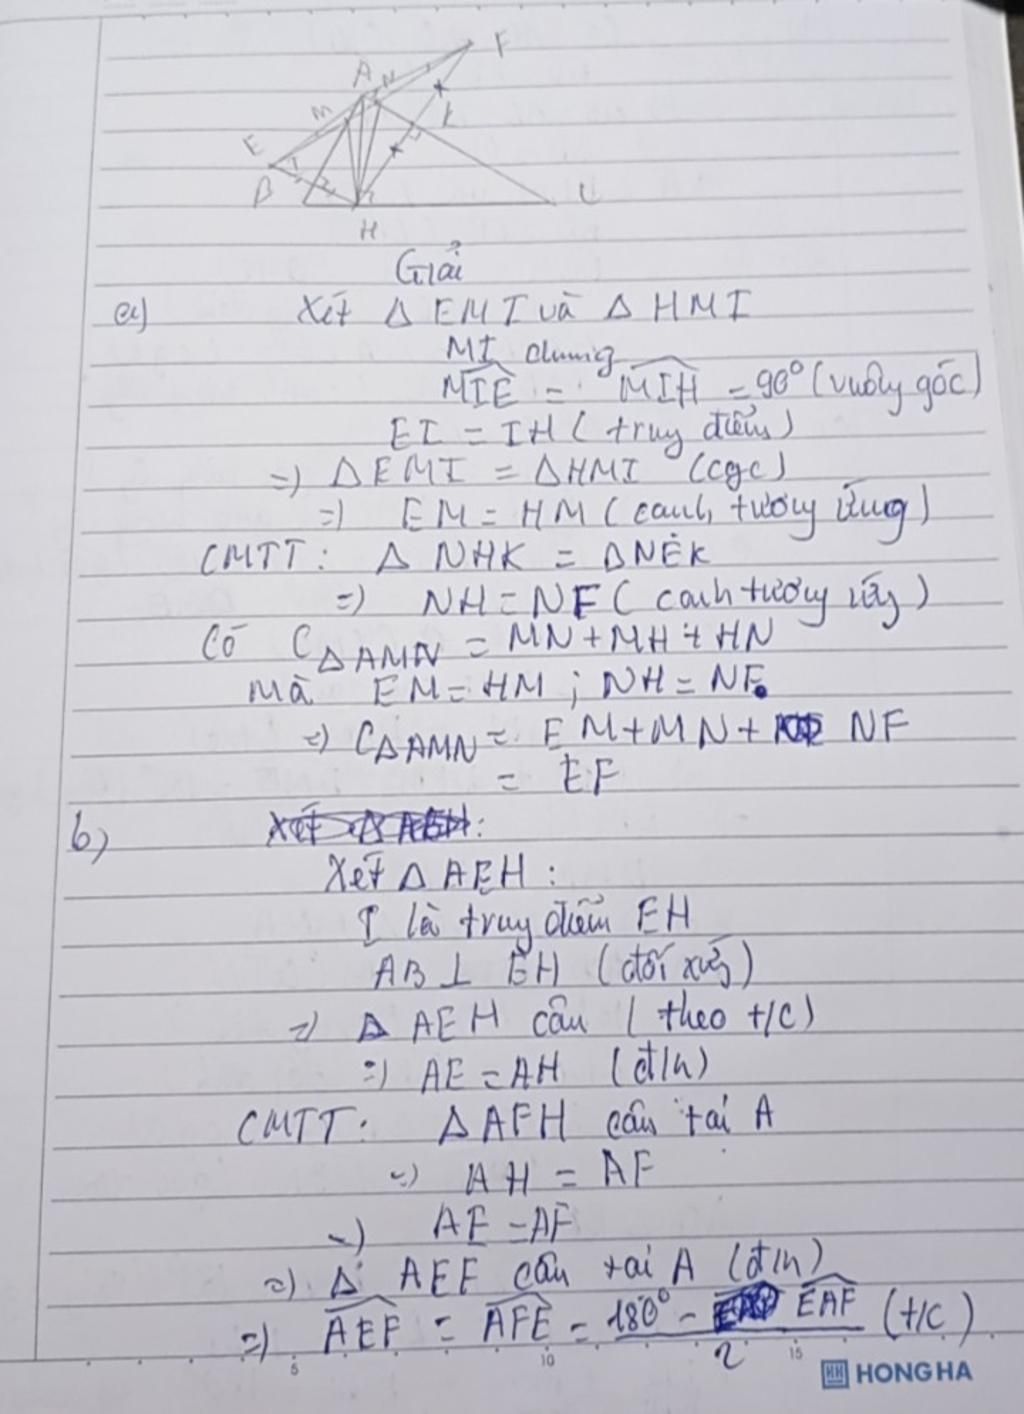 F
A N
M
E K
1
B 2 1 C
H
Giải
a) Xét Δ EMI và Δ HMI
MI chung
MIE = MIH = 90° (vuông góc)
EI = IH (trung điểm)
=) Δ EMI = ΔHMI (cgc)
=) EM = HM (cạnh tương ứng)
CMTT: Δ NHK = ΔNEK
=) NH = NF (cạnh tương ứng)
Có CΔAMN = MN + MH + HN
Mà EM = HM ; NH = NF.
=) CΔAMN = EM + MN + NF
= EF
b)
Xét Δ AEH :
I là trung điểm EH
AB ⊥ EH (đối xứng)
=) Δ AEH cân (theo t/c)
=) AE = AH (đ/n)
CMTT: Δ AFH cân tại A
=) AH = AF
=) AE = AF
=) Δ AEF cân tại A (đ/n)
=) AEF = AFE = 180° - EAF (t/c)
2
5 10 15
HH HONG HA